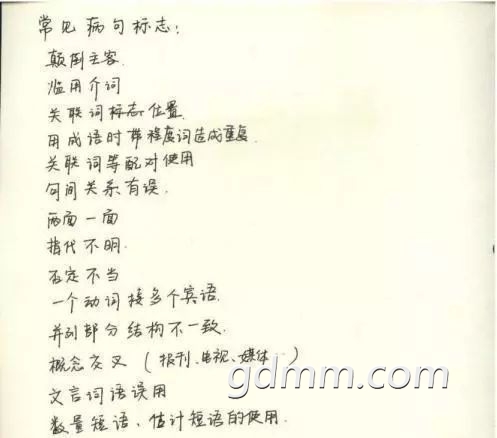 常见病句标志：
颠倒主客
滥用介词
关联词标志位置
用成语时带程度词造成重复
关联词等配对使用
句间关系有误.
两面一面
指代不明.
否定不当
一个动词接多个宾语.
并列部分结构不一致.
概念交叉（报刊、电视、媒体…）
文言词语误用
数量短语、估计短语的使用.
gdmm.com